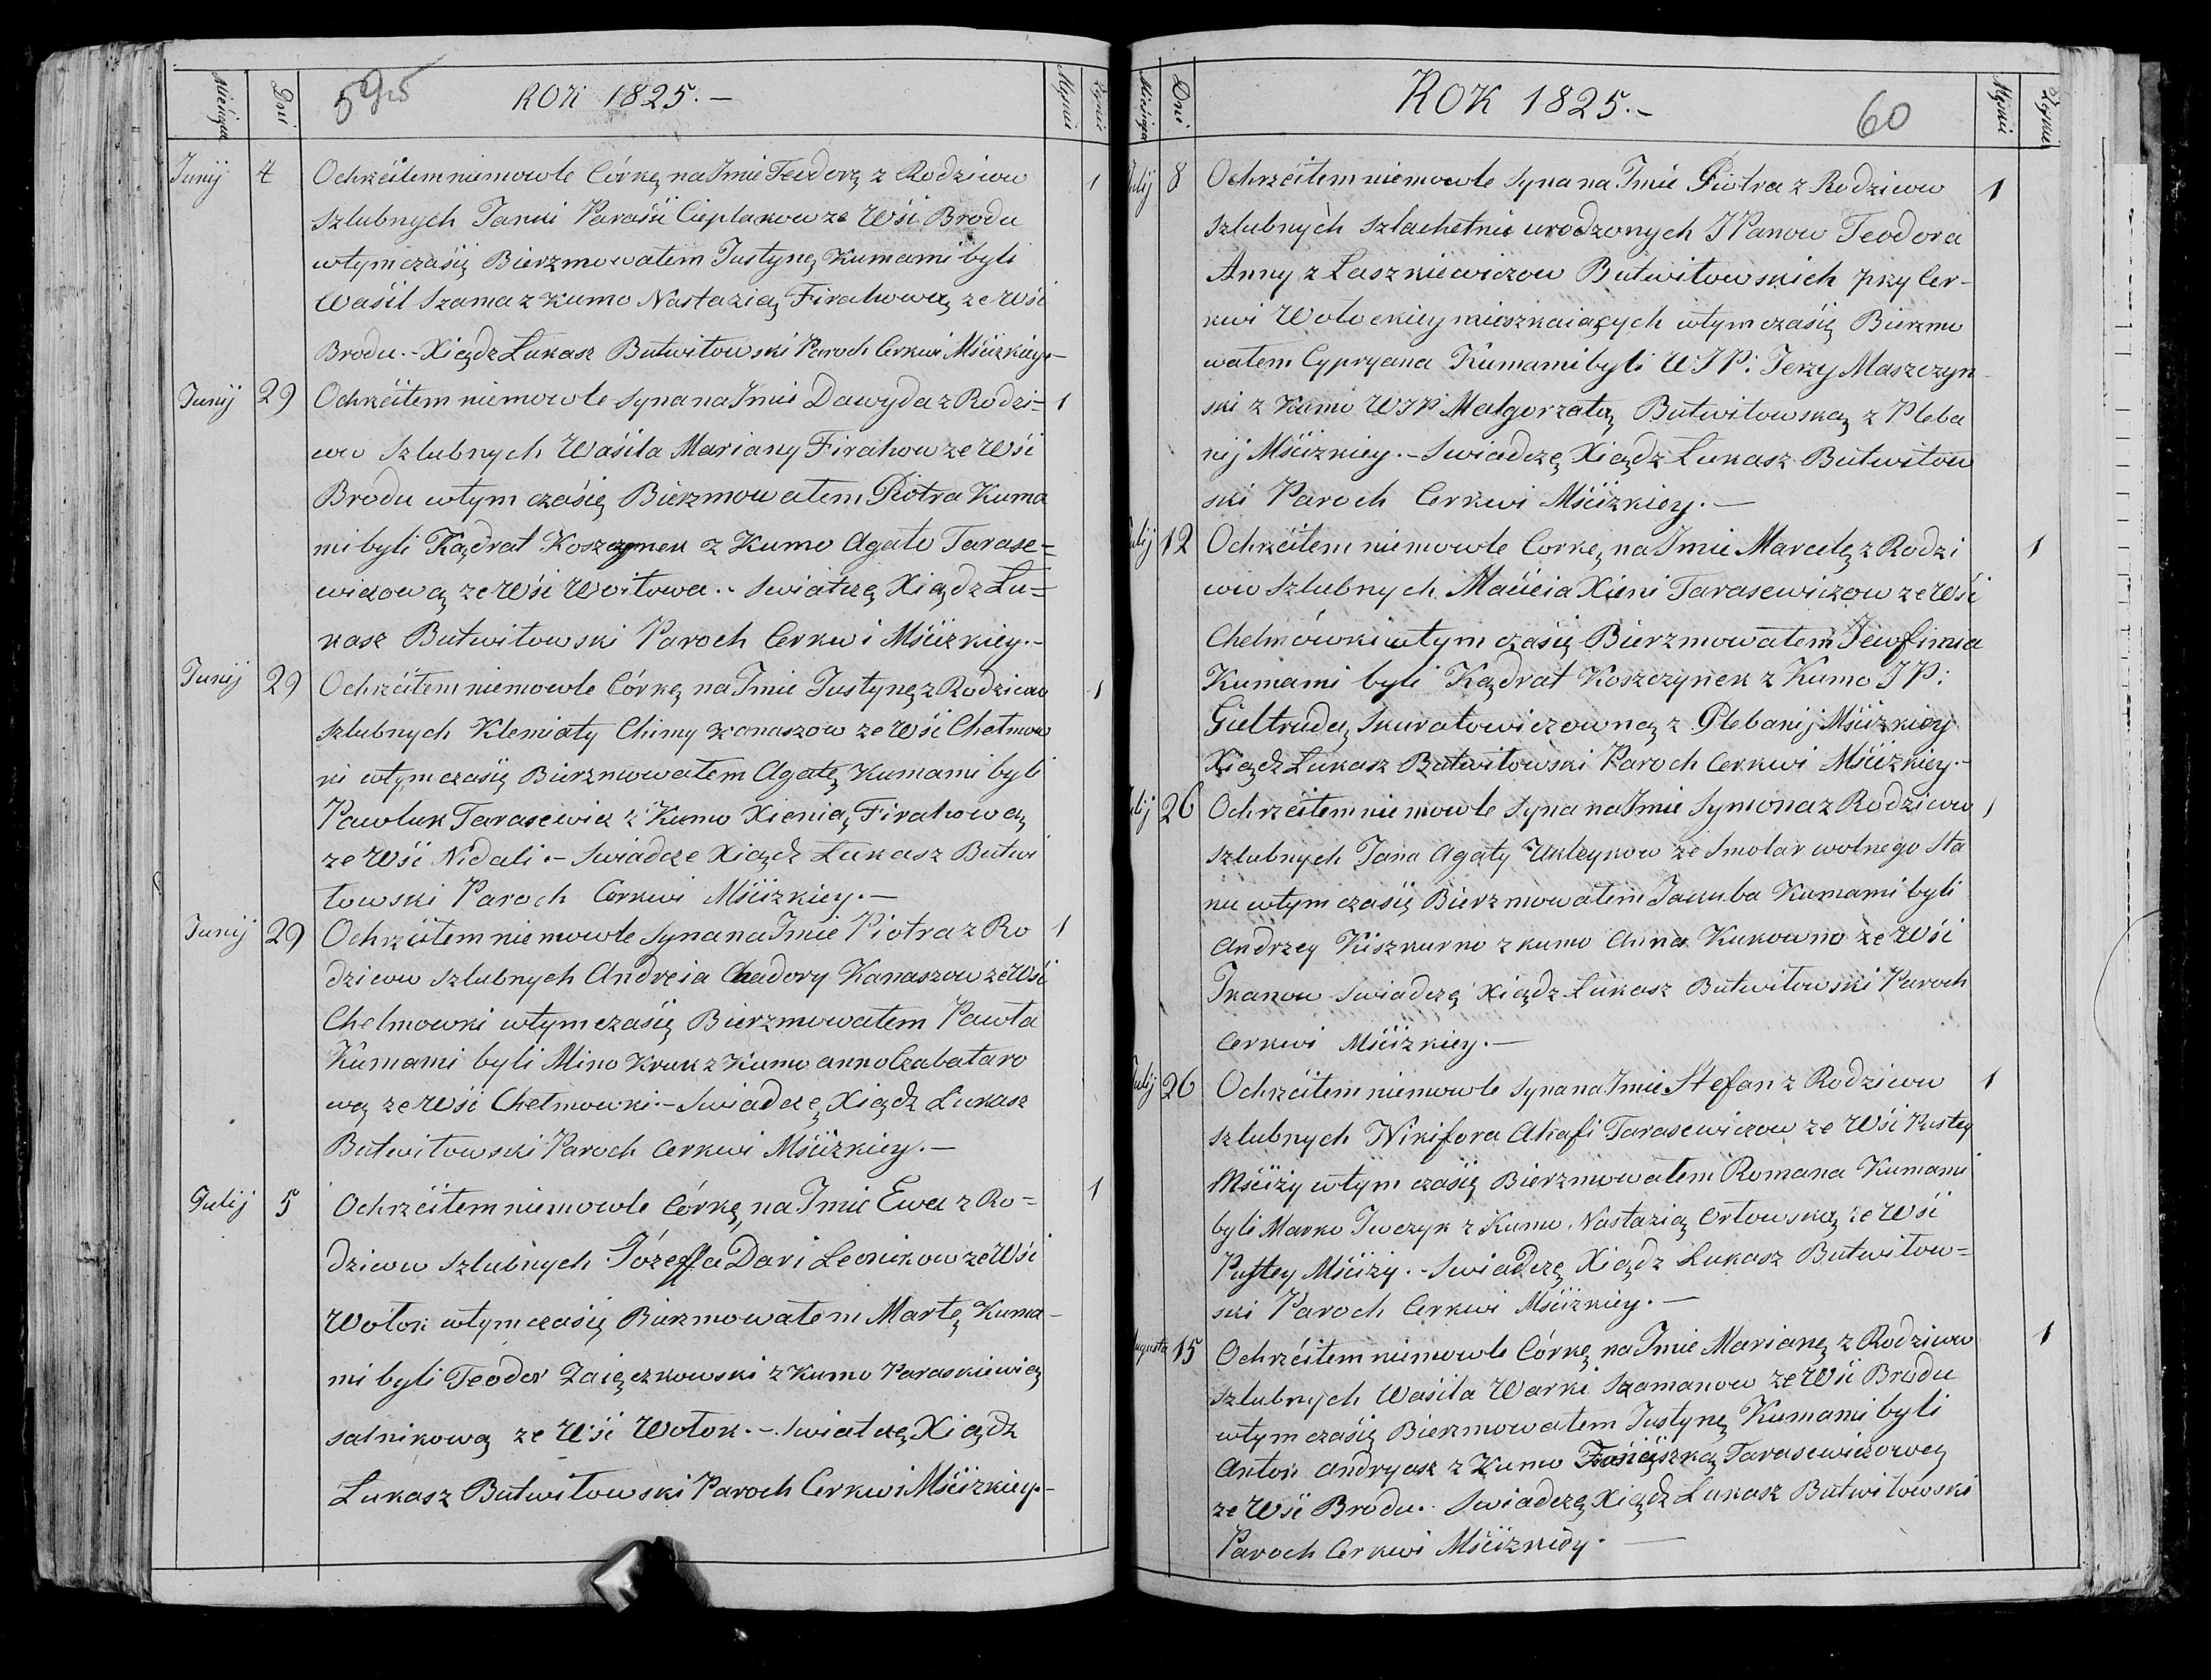 Miesiąca Dni 595 ROK 1825.— Męzkie Żeńskie
Junij 4 Ochrzciłem niemowle Córkę na Jmie Teodorę z Rodzicow 1
szlubnych Janki Parasii Cieplakow ze Wśi Brodu
wtym czasię Bierzmowałem Justynę Kumami byli
Waśil Szama z Kumo Nastazią Firahową ze Wśi
Brodu.- Xiądz Łukasz Butwiłowski Paroch Cerkwi Mśćizkiey.-
Junij 29 Ochrzciłem niemowle Syna na Jmie Dawyda z Rodzi= 1
cow Szlubnych Waśila Maryany Firahow ze Wśi
Brodu wtym czaśię Bierzmowałem Piotra Kuma
mi byli Kądrat Koszczynek z Kumo Agato Tarase=
wiczową ze Wśi Woitowa.. Swiatczę Xiądz Łu=
kasz Butwiłowski Paroch Cerkwi Mśćizkiey.-
Junij 29 Ochrzciłem niemowle Córkę na Jmie Justynę z Rodzicow 1
szlubnych Klemiaty Chimy Kanaszow ze Wśi Chełmow
ki wtym czasię Bierzmowałem Agatę Kumami byli
Pawluk Tarasewicz z Kumo Xienią Firahową
ze Wśi Nidali.- Swiadcze Xiądz Łukasz Butwi
łowski Paroch Cerkwi Mśćizkiey.—
Junij 29 Ochrzciłem niemowle Syna na Jmie Piotra z Ro 1
dzicow szlubnych Andreia Chadory Kanaszow ze Wśi
Chełmowki wtym czasię Bierzmowałem Pawła
Kumami byli Mino Kruk z Kumo anno Czabataro
wę ze Wśi Chełmowki.- Swiadczę Xiądz Łukasz
Butwiłowski Paroch Cerkwi Mśćizkiey.—
Julij 5 Ochrzciłem niemowle Córkę na Jmie Ewa z Ro= 1
dzicow szlubnych Józeffa Dari Leonikow ze Wśi
Wołok wtym czasię Bierzmowałem Martę Kuma-
mi byli Teodor Zaięczkowski z Kumo Paraskiewią
salnikową ze Wśi Wołok.- Swiatczę Xiądz
Łukasz Butwiłowski Paroch Cerkwi Mśćizkiey.-
Miesiąca Dni ROK 1825.- 60 Męzkie Żeńskie
Julij 8 Ochrzciłem niemowle Syna na Jmie Piotra z Rodzicow 1
szlubnych szlachetnie urodzonych J Panow Teodora
Anny z Laszkiewiczow Butwiłowskich przy Cer-
kwi Wołockiey mieszkaiących wtym czasię Bierzmo
wałem Cypryana Kumami byli W J P: Jerzy Maszczyn
ski z Kumo WJP Małgorzatą Butwiłowską z Pleba
nij Mśćizkiey.- Swiadczę Xiądz Łukasz Butwiłow
ski Paroch Cerkwi Mśćizkiey.—
Julij 12 Ochrzciłem niemowle Corkę na Jmie Marcelę z Rodzi 1
cow szlubnych Maćieia Xieni Tarasewiczow ze Wśi
Chełmówki wtym czasię Bierzmowałem Jewfimia
Kumami byli Kądrat Koszczynek z Kumo J P:
Gieltrudą Skuratowiczowną z Plebanij Mśćizkiey
Xiądz Łukasz Butwiłowski Paroch Cerkwi Mśćizkiey.-
Julij 26 Ochrzciłem niemowle Syna na Jmie Symona z Rodzicow 1
szlubnych Jana Agaty Ukleykow ze Smolar wolnego sta
nu wtym czasię Bierzmowałem Jakuba Kumami byli
Andrzey Kiszkurno z kumo Anna Kukowno ze Wśi
Jkanow Swiadczę Xiądz Łukasz Butwiłowski Paroch
Cerkwi Mśćizkiey.—
Julij 26 Ochrzciłem niemowle Syna na Jmie Stefan z Rodzicow 1
szlubnych Nikifora Ahafi Tarasewiczow ze Wśi Pustey
Mśćiży wtym czasię Bierzmowałem Romana Kumami
byli Marko Jwczyk z Kumo Nastazią Orłowską ze Wśi
Pustey Mśćiży.- Swiadczę Xiądz Łukasz Butwiłow=
ski Paroch Cerkwi Mśćizkiey.—
Augusta 15 Ochrzciłem niemowle Córkę na Jmie Marianę z Rodzicow 1
szlubnych Waśila Warki Szamanow ze Wśi Brodu
wtym czasię Bierzmowałem Justynę Kumami byli
Anton Andryasz z Kumo Tarasewiczową
ze Wśi Brodu. Swiadczę Xiądz Łukasz Butwiłowski
Paroch Cerkwi Mśćizkiey.—